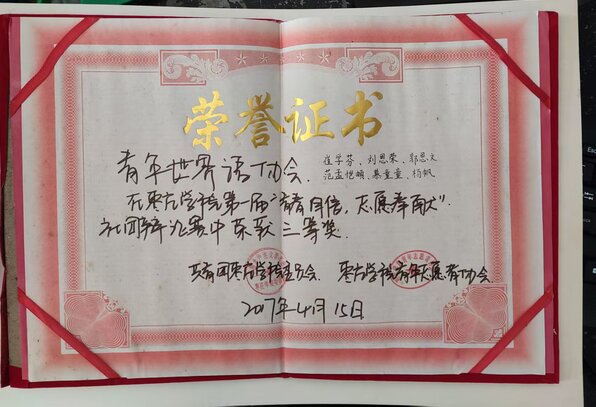 荣誉证书
青年世界语协会、崔学芬、刘思荣、郭思文
范孟恺硕、綦童童、杨帆
在枣庄学院第一届“青春自信,志愿奉献”
社团辩论赛中荣获三等奖.
共青团枣庄学院委员会、枣庄学院青年志愿者协会
2017年4月15日